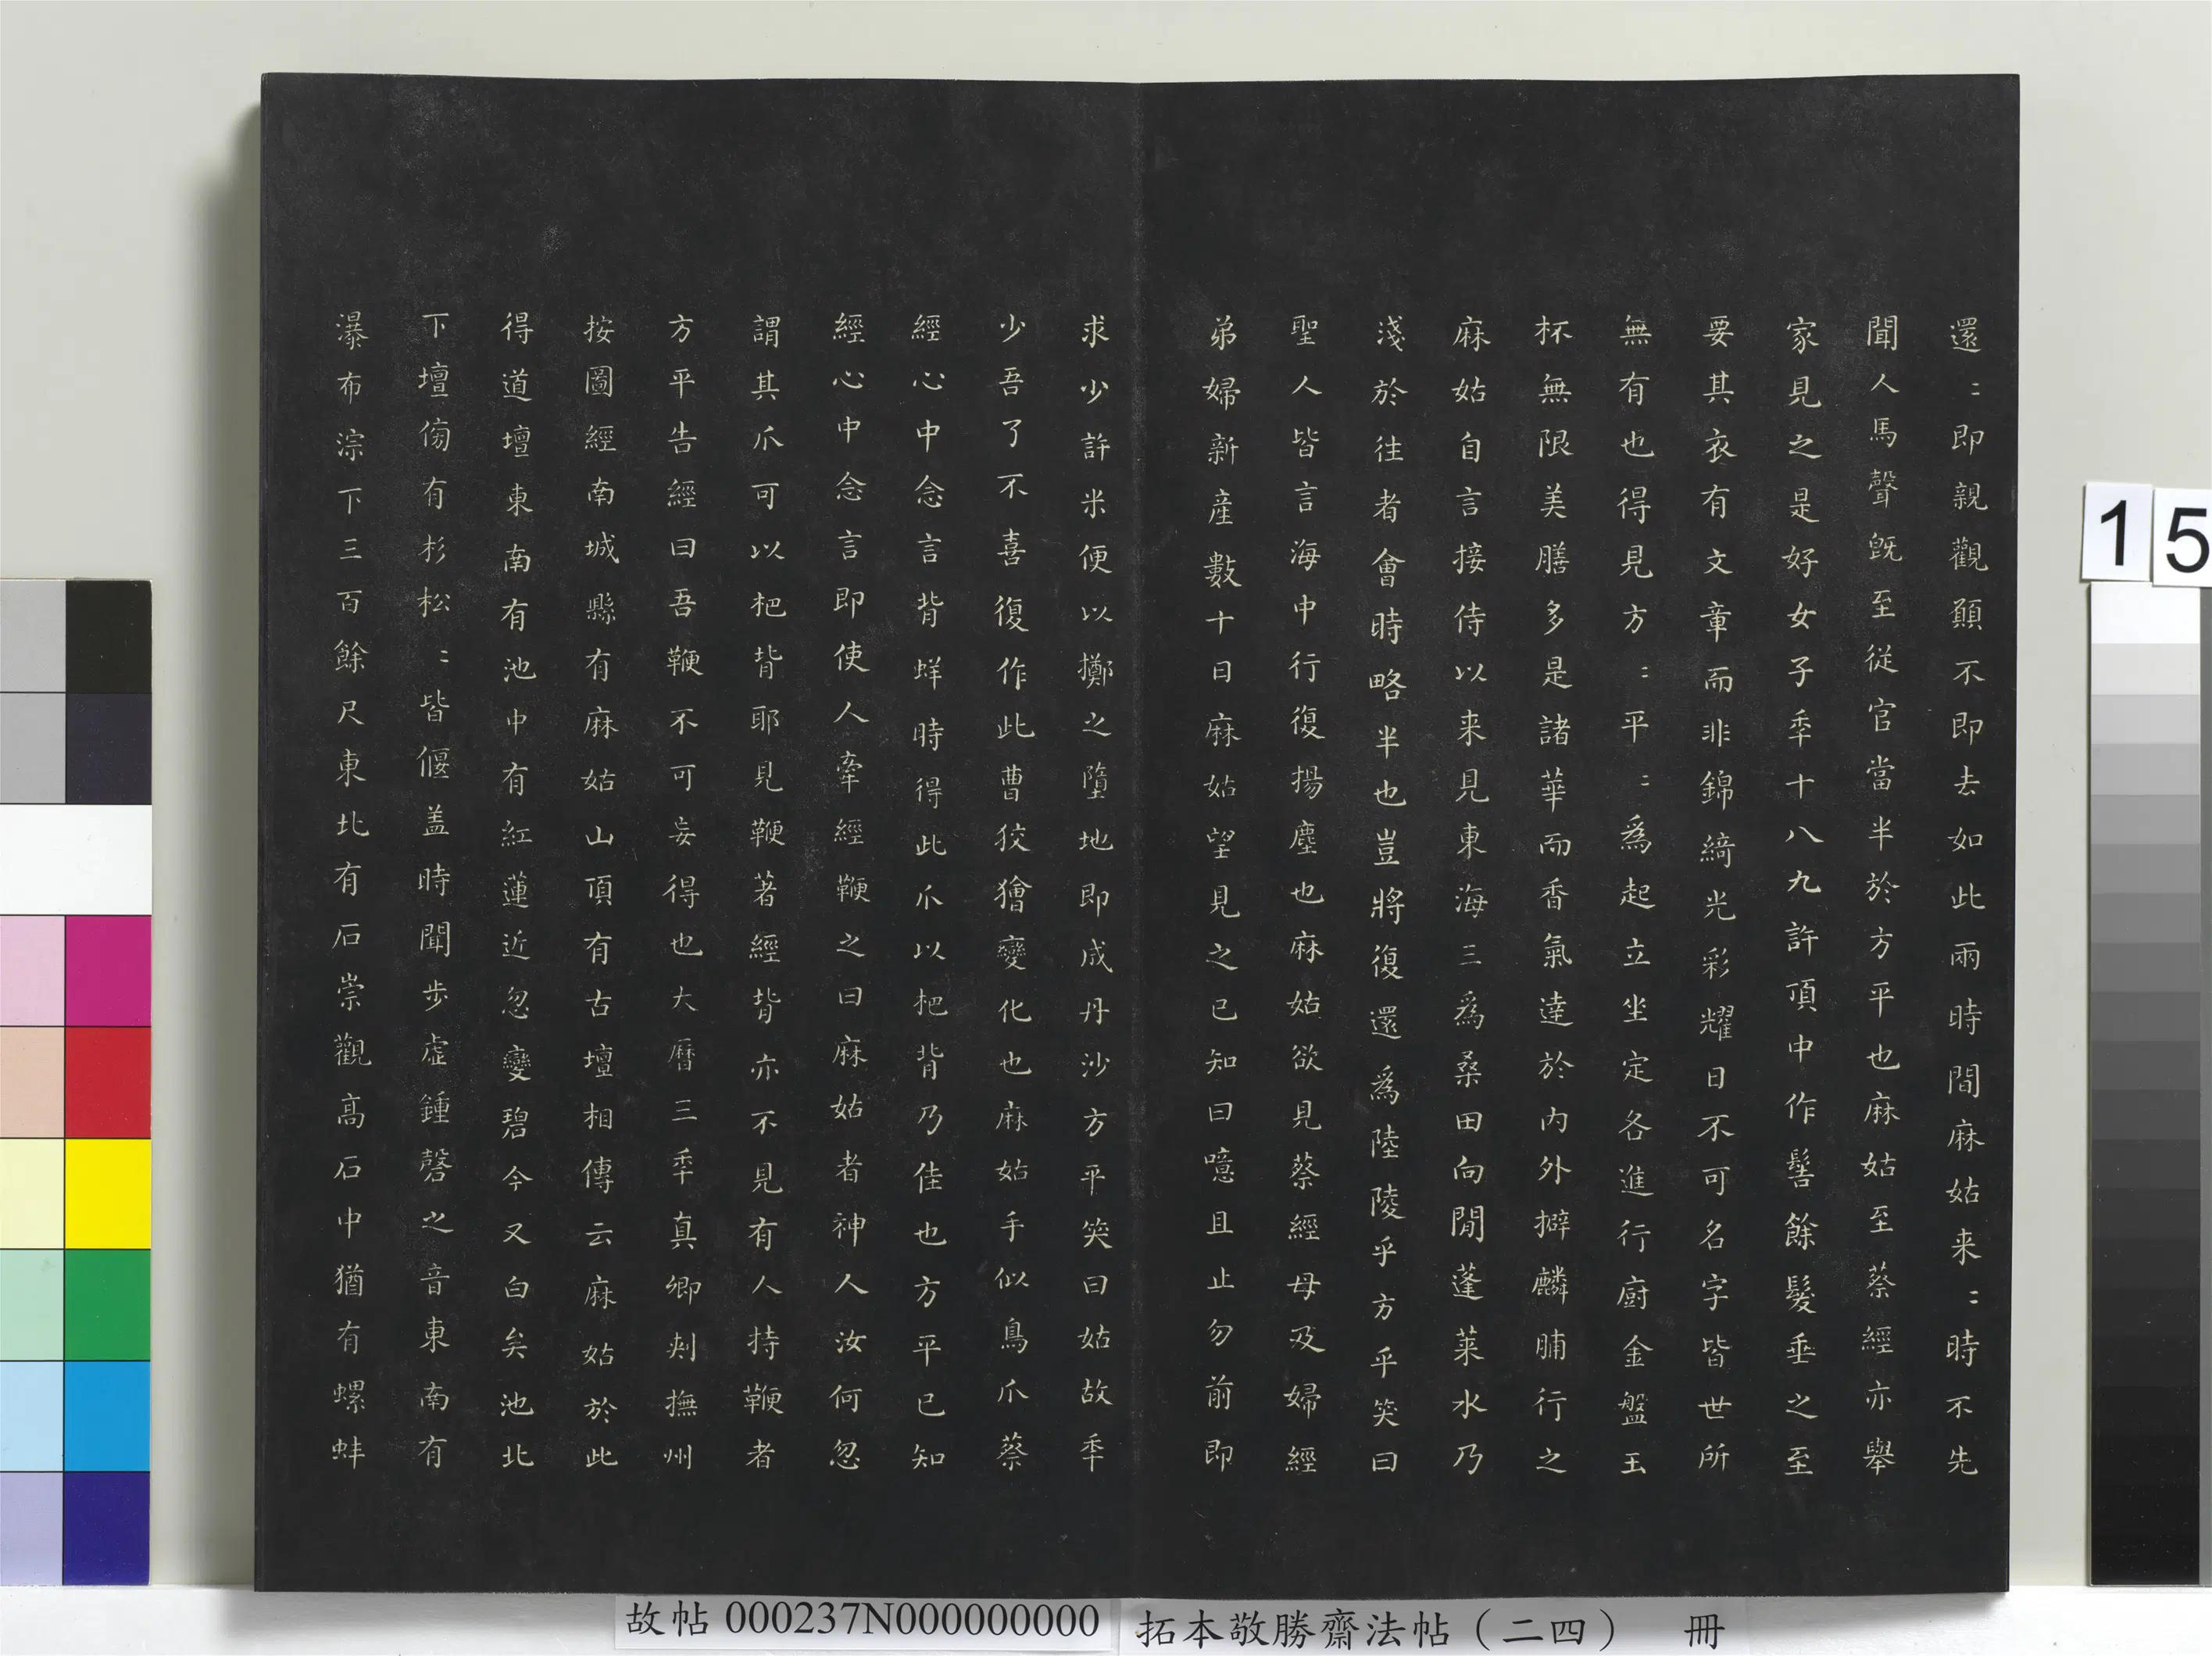 還〻即親觀願不即去如此兩時間麻姑来〻時不先
聞人馬聲既至從官當半於方平也麻姑至蔡經亦舉
家見之是好女子秊十八九許頂中作髻餘髮垂之至
要其衣有文章而非錦綺光彩耀日不可名字皆世所
無有也得見方〻平〻為起立坐定各進行廚金盤玉
杯無限美膳多是諸華而香氣達於內外擗麟脯行之
麻姑自言接侍以来見東海三為桑田向閒蓬莱水乃
淺於往者會時略半也豈將復還為陸陵乎方平笑曰
聖人皆言海中行復揚塵也麻姑欲見蔡經母及婦經
弟婦新產數十日麻姑望見之已知曰噫且止勿前即
求少許米便以擲之墮地即成丹沙方平笑曰姑故秊
少吾了不喜復作此曹狡獪變化也麻姑手似鳥爪蔡
經心中念言背蛘時得此爪以杷背乃佳也方平已知
經心中念言即使人牽經鞭之曰麻姑者神人汝何忽
謂其爪可以杷背耶見鞭著經背亦不見有人持鞭者
方平告經曰吾鞭不可妄得也大曆三秊真卿刾撫州
按圖經南城縣有麻姑山頂有古壇相傳云麻姑於此
得道壇東南有池中有紅蓮近忽變碧今又白矣池北
下壇傍有杉松〻皆偃盖時聞步虛鍾磬之音東南有
瀑布淙下三百餘尺東北有石崇觀高石中猶有螺蚌
15
故帖 000237N000000000 拓本敬勝齋法帖（二四） 冊